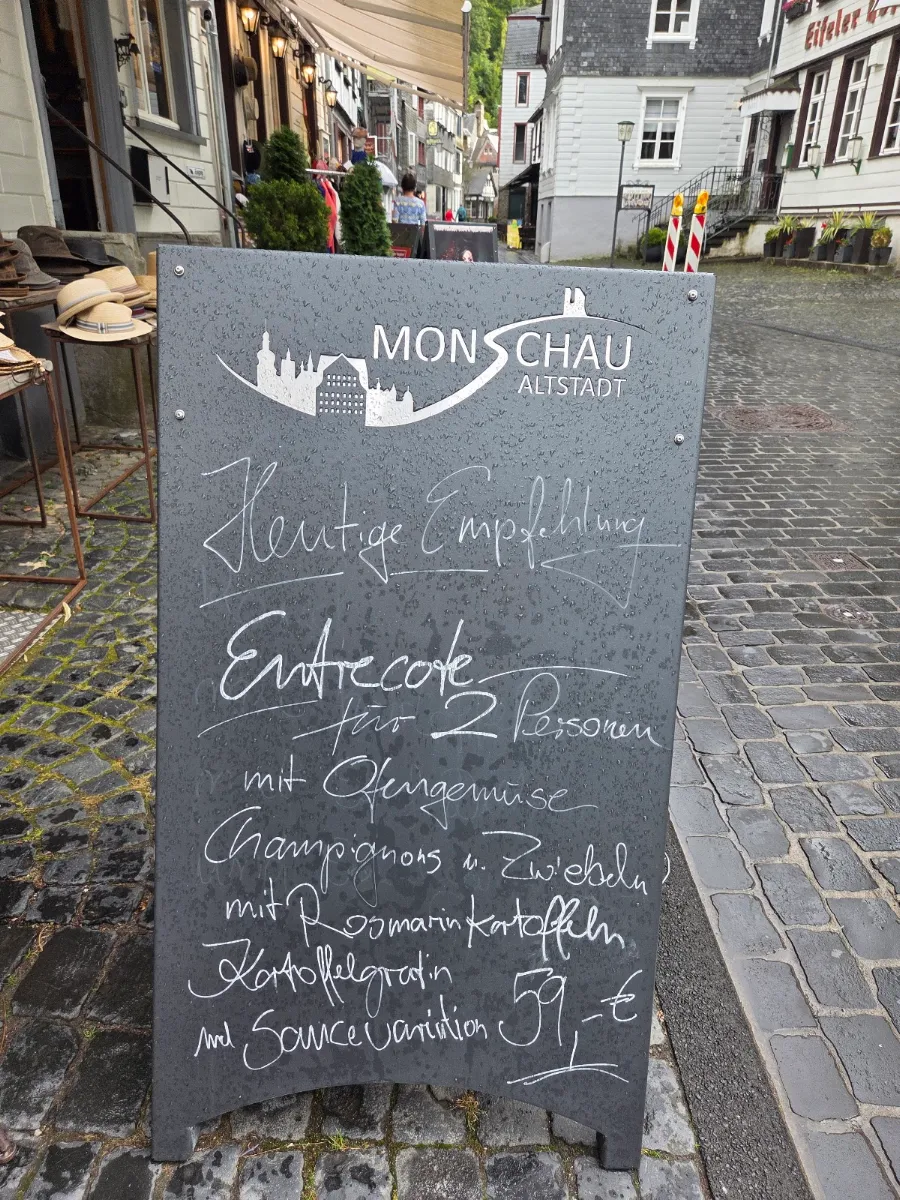 Eifeler
MONSCHAU
ALTSTADT
Heutige Empfehlung
Entrecote
für 2 Personen
mit Ofengemüse
Champignons u. Zwiebeln
mit Rosmarinkartoffeln
Kartoffelgratin
und Saucevariation 59,-€